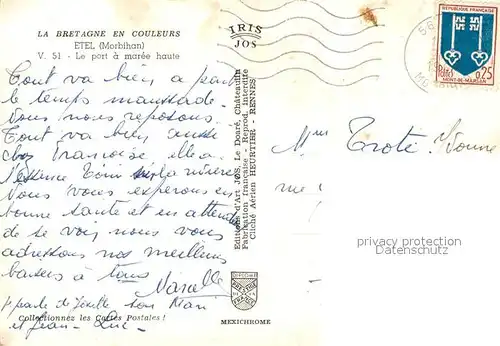 LA BRETAGNE EN COULEURS
ETEL (Morbihan)
V. 51 - Le port à marée haute
IRIS
JOS
Tout va bien à part
le temps maussade.
Nous nous reposons.
Tout va bien aussi
chez Françoise, elle a
Nous vous espérons en
bonne santé et en attendant
de te voir nous vous
adressons nos meilleurs
baisers à tous
Marcelle
son Mari
et Jean-Luc
Collectionnez les Cartes Postales !
Editions d'Art JOS, Le Doaré Châteaulin
Fabrication française - Reprod. Interdite
Cliché Aérien HEURTIER - RENNES
MEXICHROME
REPUBLIQUE FRANÇAISE
Postes
0,25
MONT-DE-MARSAN
56
Mme Troti Yvonne
privacy protection
watermark